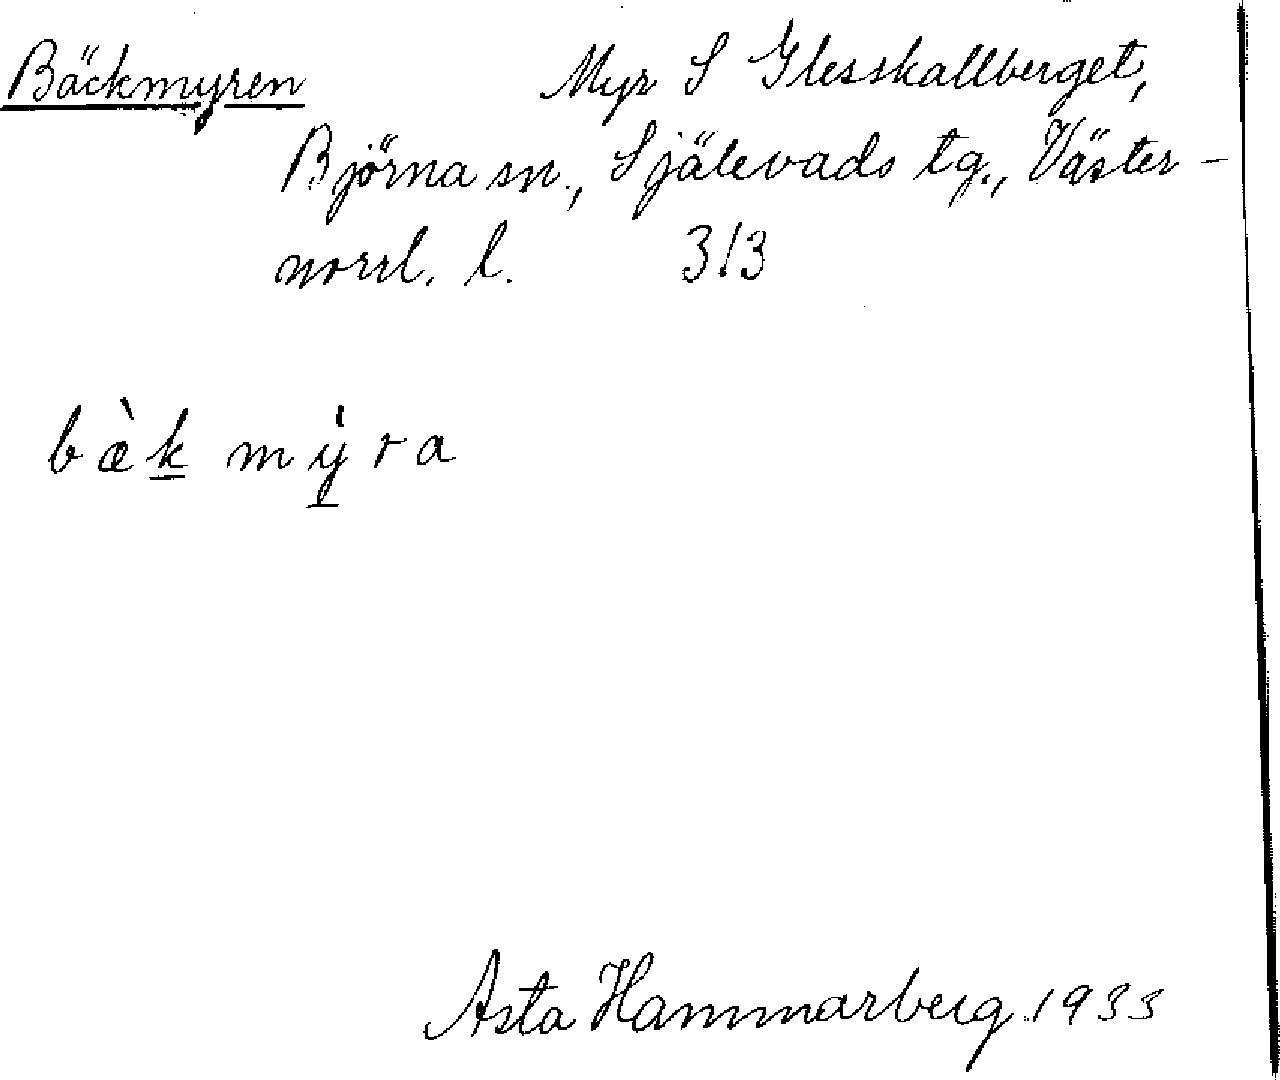 Bäckmyren Myr S Glesskallberget,
Björna sn., Själevads tg., Väster-
norrl. l. 313
bæ̀k̲ mý̲ra
Asta Hammarberg 1933